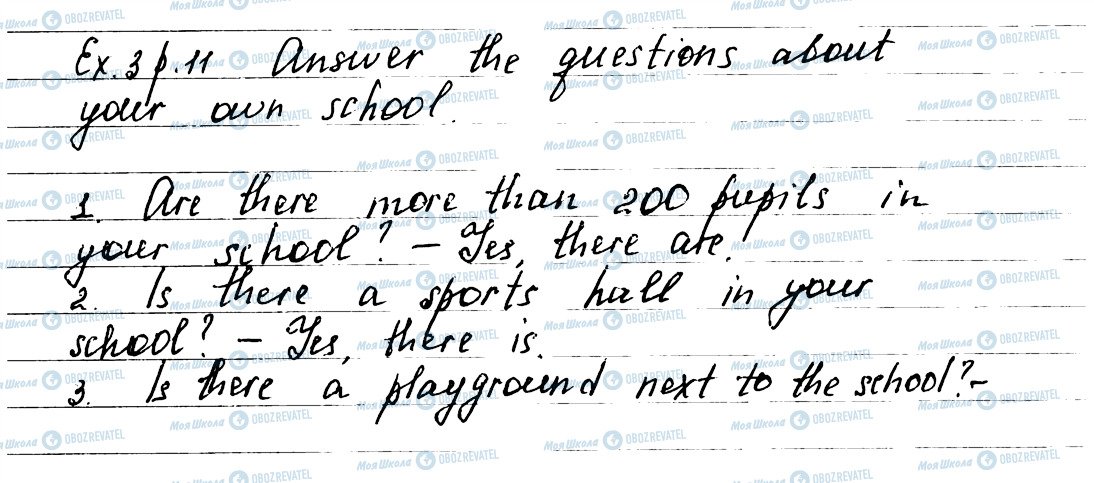 Ex. 3 p. 11 Answer the questions about
your own school.
1. Are there more than 200 pupils in
your school? – Yes, there are.
2. Is there a sports hall in your
school? – Yes, there is.
3. Is there a playground next to the school? –